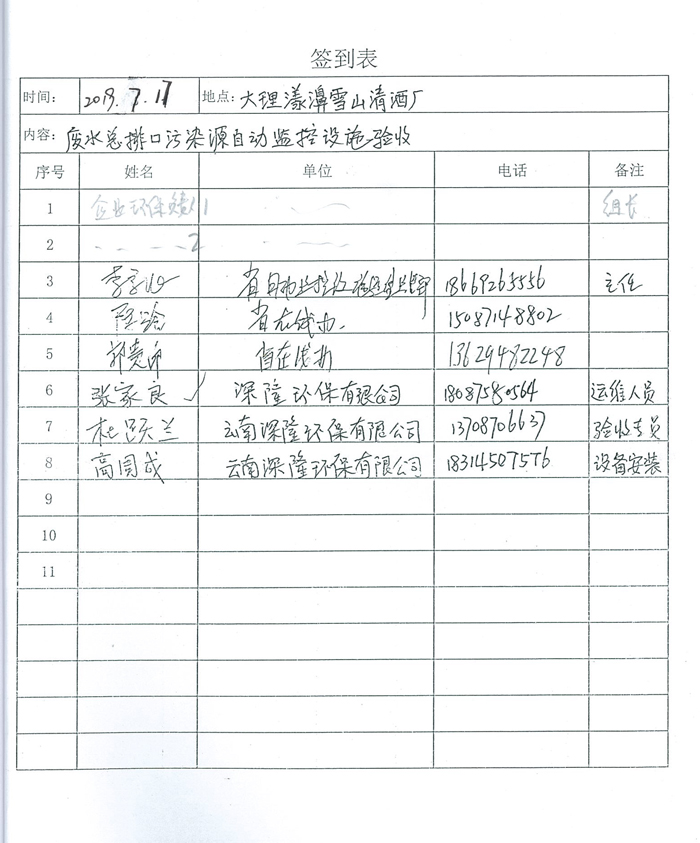 签到表
时间: 2019.7.17 地点: 大理漾濞雪山清酒厂
内容: 废水总排口污染源自动监控设施验收
序号 姓名 单位 电话 备注
1 企业环保 1 组长
2 2
3 18669265556 主任
4 省在线办. 15087148802
5 省在线办 13629482248
6 张家良 ✓ 深隆环保有限公司 18087580564 运维人员
7 杜跃兰 云南深隆环保有限公司 13708706637 验收专员
8 高国成 云南深隆环保有限公司 18314507576 设备安装
9
10
11